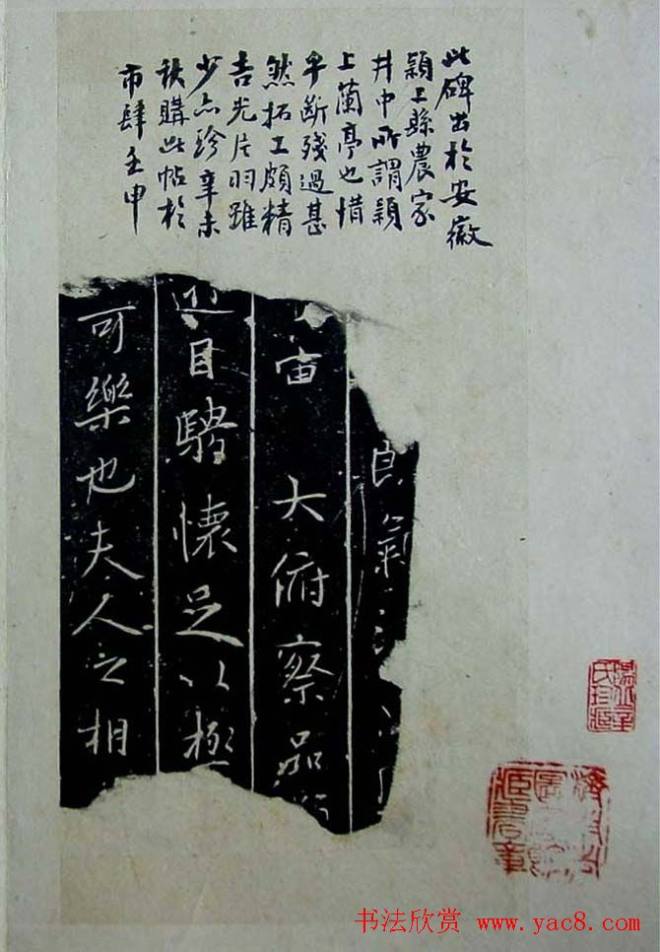 此碑出於安徽
潁上縣農家
井中所謂潁
上蘭亭也惜
乎斷殘過甚
然拓工頗精
吉光片羽雖
少亦珍辛未
秋購此帖於
市肆壬申
氣
宙 大俯察品
遊目騁懷足以極
可樂也夫人之相
氏珍藏
書法欣赏 www.yac8.com